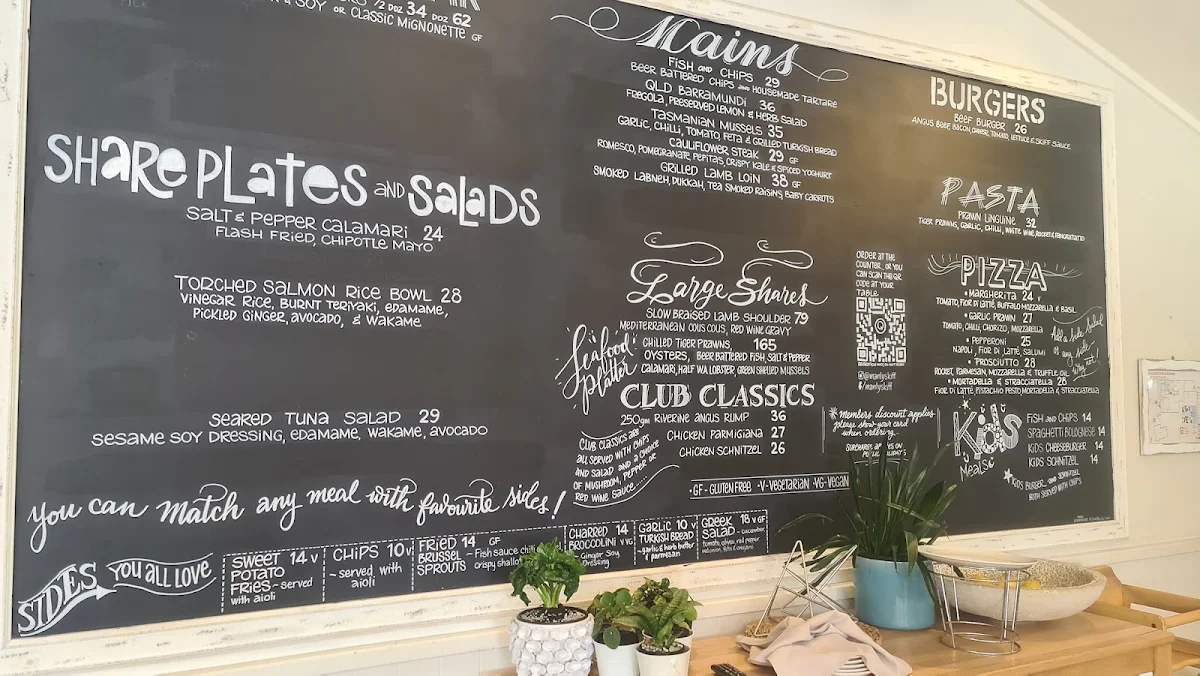 ½ DOZ 34 DOZ 62
& SOY OR CLASSIC MIGNONETTE GF
SHARE PLATES AND SALADS
SALT & PEPPER CALAMARI 24
FLASH FRIED, CHIPOTLE MAYO
TORCHED SALMON RICE BOWL 28
VINEGAR RICE, BURNT TERIYAKI, EDAMAME,
PICKLED GINGER, AVOCADO, & WAKAME
SEARED TUNA SALAD 29
SESAME SOY DRESSING, EDAMAME, WAKAME, AVOCADO
you can match any meal with favourite sides!
SIDES YOU ALL LOVE
SWEET 14 V
POTATO
FRIES - served
with aioli
CHIPS 10 V
- served with
aioli
FRIED 14 GF
BRUSSEL
SPROUTS
- Fish sauce
crispy
CHARRED 14
BROCCOLINI V VG
- Ginger Soy
Dressing
GARLIC 10 V
TURKISH BREAD
- garlic & herb butter
& parmesan
GREEK 18 V GF
SALAD - cucumber
tomato, olives, red pepper
Mains
FISH AND CHIPS 29
BEER BATTERED CHIPS AND HOUSEMADE TARTARE
QLD BARRAMUNDI 36
FREGOLA, PRESERVED LEMON & HERB SALAD
TASMANIAN MUSSELS 35
GARLIC, CHILLI, TOMATO, FETA & GRILLED TURKISH BREAD
CAULIFLOWER STEAK 29 GF
ROMESCO, POMEGRANATE, PEPITAS, CRISPY KALE & SPICED YOGHURT
GRILLED LAMB LOIN 38 GF
SMOKED LABNEH, DUKKAH, TEA SMOKED RAISINS, BABY CARROTS
Large Shares
SLOW BRAISED LAMB SHOULDER 79
MEDITERRANEAN COUS COUS, RED WINE GRAVY
Seafood Platter
CHILLED TIGER PRAWNS, 165
OYSTERS, BEER BATTERED FISH, SALT & PEPPER
CALAMARI, HALF WA LOBSTER, GREEN SHELLED MUSSELS
CLUB CLASSICS
250gm RIVERINE ANGUS RUMP 36
CHICKEN PARMIGIANA 27
CHICKEN SCHNITZEL 26
CLUB CLASSICS ARE
ALL SERVED WITH CHIPS
AND SALAD AND A CHOICE
OF MUSHROOM, PEPPER OR
RED WINE SAUCE
·GF - GLUTEN FREE ·V - VEGETARIAN ·VG - VEGAN
ORDER AT THE
COUNTER, OR YOU
CAN SCAN THE QR
CODE AT YOUR
TABLE
@manlyskiff
/manlyskiff
*Members discount applies
please show your card
when ordering
BURGERS
BEEF BURGER 26
ANGUS BEEF, BACON, CHEESE, TOMATO, LETTUCE & SKIFF SAUCE
PASTA
PRAWN LINGUINE 32
TIGER PRAWNS, GARLIC, CHILLI, WHITE WINE, ROCKET & PANGRATTATO
PIZZA
• MARGHERITA 24 V
TOMATO, FIOR DI LATTE, BUFFALO MOZZARELLA & BASIL
• GARLIC PRAWN 27
TOMATO, CHILLI, CHORIZO, MOZZARELLA
• PEPPERONI 25
NAPOLI, FIOR DI LATTE, SALUMI
• PROSCIUTTO 28
ROCKET, PARMESAN, MOZZARELLA & TRUFFLE OIL
• MORTADELLA & STRACCIATELLA 28
FIOR DI LATTE, PISTACHIO PESTO MORTADELLA & STRACCIATELLA
Add a side salad
or any side
why not!
Kids
Meals
FISH AND CHIPS 14
SPAGHETTI BOLOGNESE 14
KIDS CHEESEBURGER 14
KIDS SCHNITZEL 14
KIDS BURGER AND SCHNITZEL
BOTH SERVED WITH CHIPS